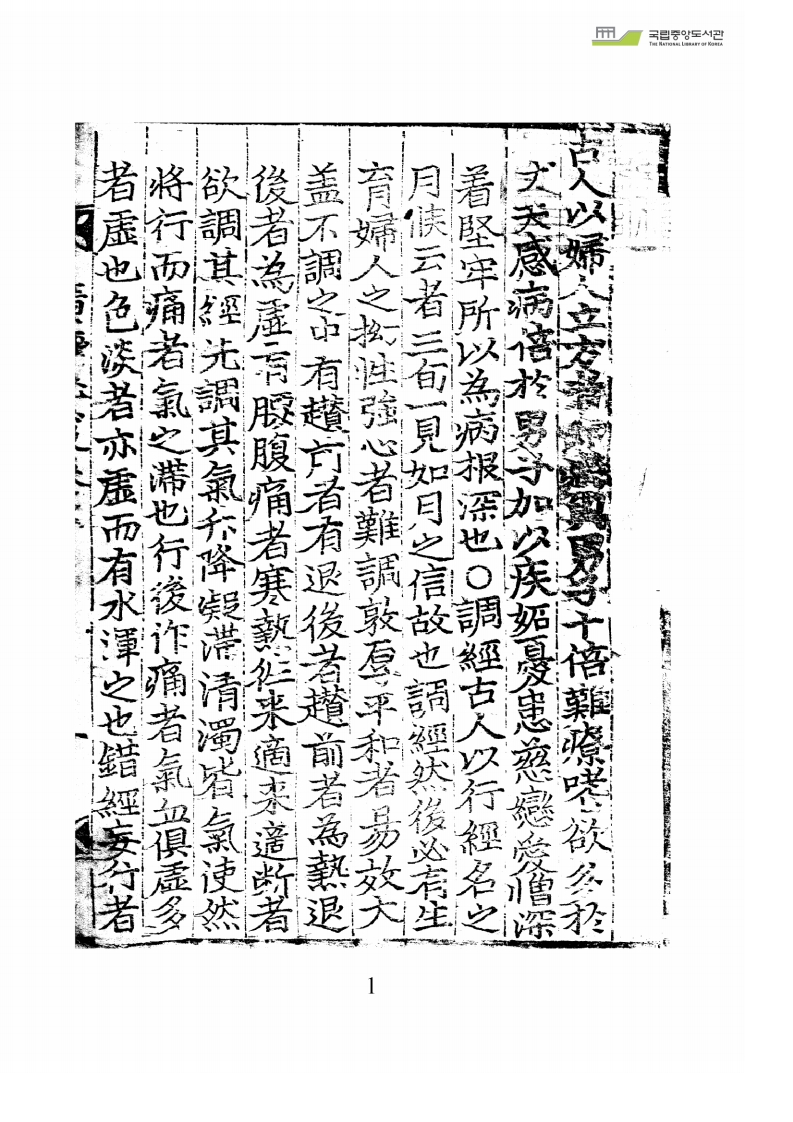 국립중앙도서관
THE NATIONAL LIBRARY OF KOREA
古人以婦人立方者 男子十倍難療嗜欲多於
丈夫感病倍於男子加以疾妬憂恚慈戀愛憎深
着堅牢所以為病根深也○調經古人以行經名之
月候云者三旬一見如月之信故也調經然後必有生
育婦人之拗性強心者難調敦厚平和者易效大
盖不調之中有趲前者有退後者趲前者為熱退
後者為虛有腹痛者寒熱徃来適来適断者
欲調其經先調其氣升降凝滞清濁皆氣使然
將行而痛者氣之滯也行後作痛者氣血俱虛多
者虛也色淡者亦虛而有水渾之也錯經妄行者
1